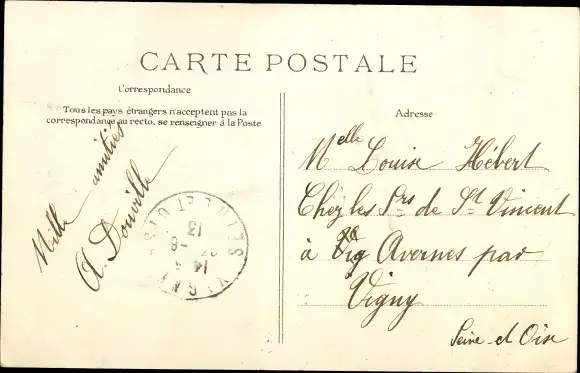 CARTE POSTALE
Correspondance
Tous les pays étrangers n'acceptent pas la
correspondance au recto, se renseigner à la Poste
Mille amitiés
A. Douville
Adresse
Melle Louise Hébert
Chez les Srs de St Vincent
à Avernes par
Vigny
Seine et Oise
SEINE ET OISE
VIGNY